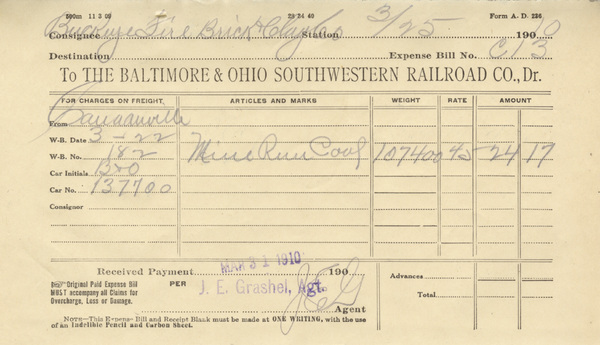 500m 11 3 09 23 24 40 Form A. D. 236
Consignee Buckeye Fire Brick & Clay Co Station 3/25 190 0
Destination Expense Bill No. C13
To THE BALTIMORE & OHIO SOUTHWESTERN RAILROAD CO., Dr.
FOR CHARGES ON FREIGHT. ARTICLES AND MARKS WEIGHT RATE AMOUNT
From
W-B. Date 3-22
W-B. No. 182 Mine Run Coal 107400 45 24 17
Car Initials B&O
Car No. 137700
Consignor
MAR 31 1910
Received Payment 190 Advances
Original Paid Expense Bill
MUST accompany all Claims for
Overcharge, Loss or Damage.
PER J. E. Grashel, Agt.
JEG
Agent
Total
NOTE—This Expense Bill and Receipt Blank must be made at ONE WRITING, with the use
of an Indelible Pencil and Carbon Sheet.